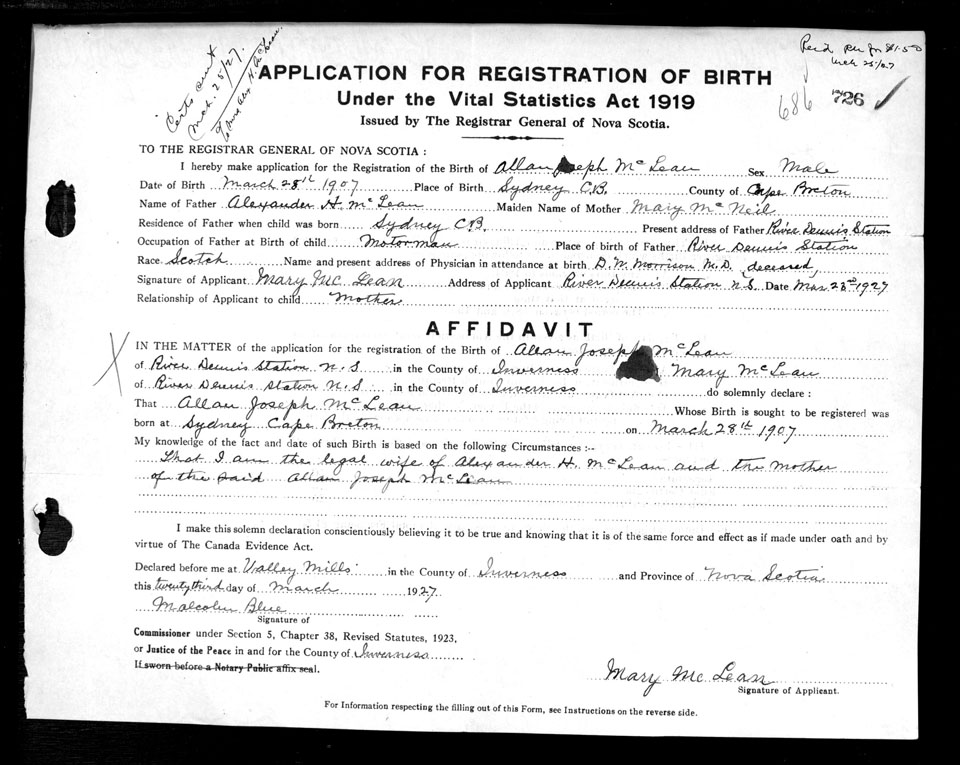 Certs sent
Mch. 25/27.
To Mrs Alex. H. McLean.
Recd $1.50
Mch 25/27
APPLICATION FOR REGISTRATION OF BIRTH
686 726 ✓
Under the Vital Statistics Act 1919
Issued by The Registrar General of Nova Scotia.
TO THE REGISTRAR GENERAL OF NOVA SCOTIA :
I hereby make application for the Registration of the Birth of Allan Joseph McLean Sex Male
Date of Birth March 28th 1907 Place of Birth Sydney C.B. County of Cape Breton
Name of Father Alexander H. McLean Maiden Name of Mother Mary McNeil
Residence of Father when child was born Sydney C.B. Present address of Father River Dennis Station
Occupation of Father at Birth of child Motorman Place of birth of Father River Dennis Station
Race Scotch Name and present address of Physician in attendance at birth D. W. Morrison M.D. deceased,
Signature of Applicant Mary Mc Lean Address of Applicant River Dennis Station N.S. Date Mar 23rd 1927
Relationship of Applicant to child Mother
AFFIDAVIT
X IN THE MATTER of the application for the registration of the Birth of Allan Joseph McLean
of River Dennis Station N.S in the County of Inverness Mary McLean
of River Dennis Station N.S in the County of Inverness do solemnly declare :
That Allan Joseph McLean Whose Birth is sought to be registered was
born at Sydney Cape Breton on March 28th 1907
My knowledge of the fact and date of such Birth is based on the following Circumstances :--
That I am the legal wife of Alexander H. McLean and the mother
of the said Allan Joseph McLean
I make this solemn declaration conscientiously believing it to be true and knowing that it is of the same force and effect as if made under oath and by
virtue of The Canada Evidence Act.
Declared before me at Valley Mills in the County of Inverness and Province of Nova Scotia
this twenty third day of March 1927
Malcolm Blue
Signature of
Commissioner under Section 5, Chapter 38, Revised Statutes, 1923,
or Justice of the Peace in and for the County of Inverness
If sworn before a Notary Public affix seal.
Mary Mc Lean
Signature of Applicant.
For Information respecting the filling out of this Form, see Instructions on the reverse side.